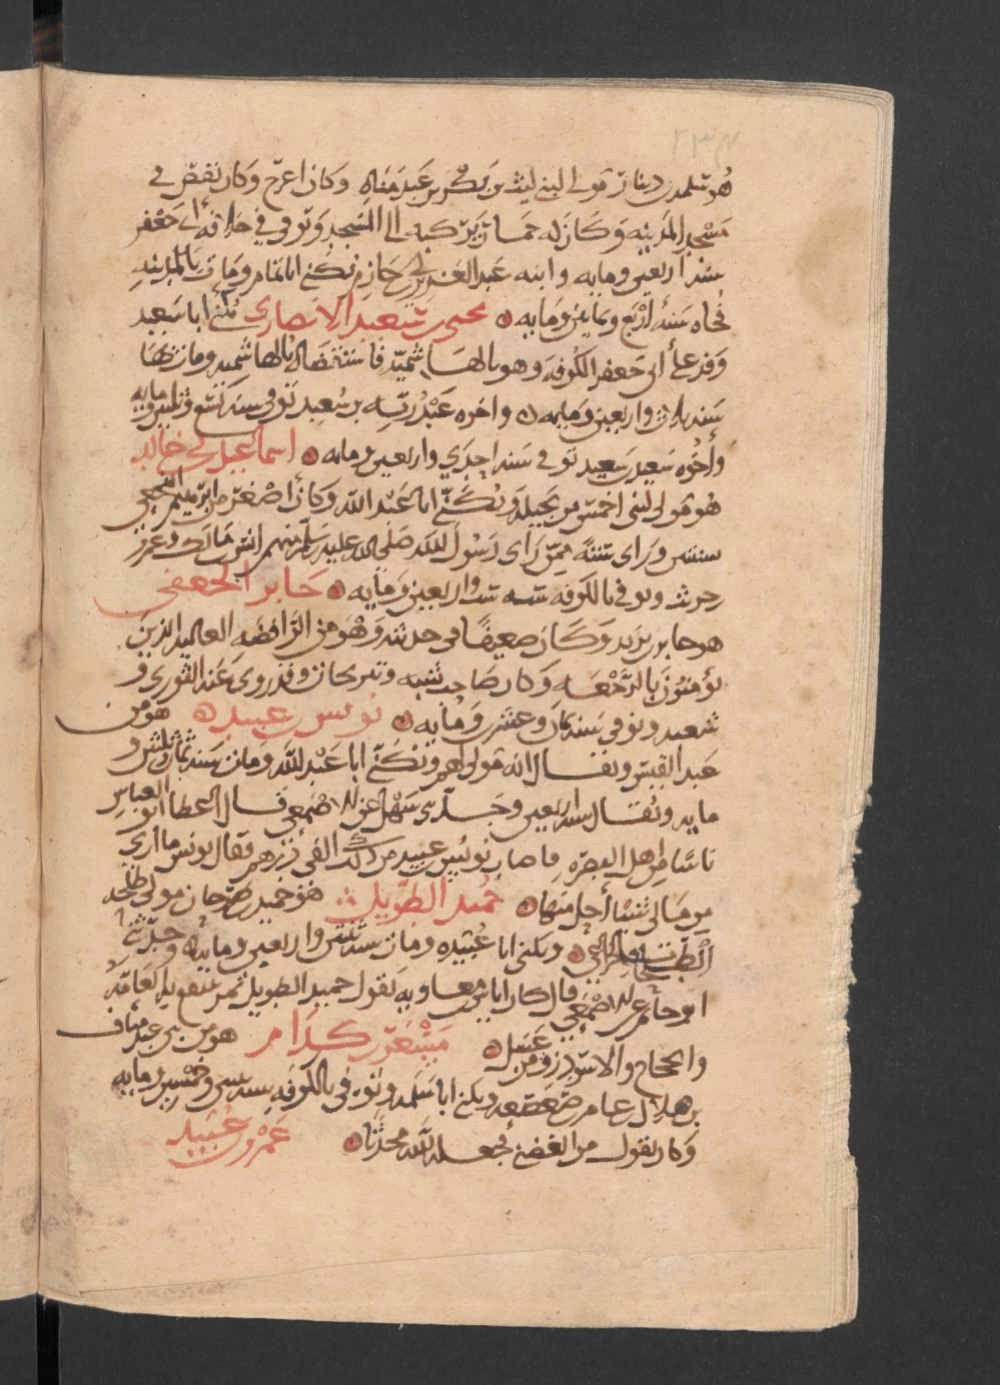 هو سلمه بن دينار مولى لبني ليث بن بكر بن عبد مناه وكان اعرج وكان يقص في
مسجد المدينه وكان له حمار يركبه الى المسجد وتوفي في خلافه ابي جعفر
سنه اربعين ومايه وابنه عبد العزيز بن ابي حازم يكنى ابا تمام ومات بالمدينه
فجاه سنه اربع وثمانين ومايه يحيى بن سعيد الانصاري يكنى ابا سعيد
وقدم على ابي جعفر الكوفه وهو بالهاشميه فاستقضاه بالهاشميه ومات بها
سنه ثلاث واربعين ومايه واخوه عبد ربه بن سعيد توفي سنه تسع وثلثين ومايه
واخوه سعد بن سعيد توفي سنه احدي واربعين ومايه اسماعيل بن ابي خالد
هو مولى لبني احمس من بجيله ويكنى ابا عبد الله وكان اصغر من ابرهيم النخعي
بسنتين وراى سته ممن راى رسول الله صلى الله عليه وسلم منهم انس بن مالك وعمرو
بن حريث وتوفي بالكوفه سنه ست واربعين ومايه جابر الجعفي
هو جابر بن يزيد وكان ضعيفا في حديثه وهو من الرافضه الغاليه الذين
يؤمنون بالرجعه وكان صاحب شبه ونيرنجات وقد روى عنه الثوري و
شعبه وتوفي سنه ثمان وعشرين ومايه يونس بن عبيد هو من
عبد القيس ويقال انه مولى لهم ويكنى ابا عبد الله ومات سنه تسع وثلثين و
مايه ويقال سنه اربعين وحدثني سهل عن الاصمعي قال اعطا ابو العباس
ناسا من اهل البصره فاصاب يونس بن عبيد من ذلك الفي درهم فقال يونس ما ارى
من مالي شيئا احل منها حميد الطويل هو حميد بن طرخان مولى طلحه
الطلحات الخزاعي ويكنى ابا عبيده ومات سنه ثنتين واربعين ومايه وحدثني
ابو حاتم عن الاصمعي قال كان اياس بن معاويه يقول حميد الطويل ثمر ينتفع به العامه
والحجاج والاسود زق من عسل مسعر بن كدام هو من بني عبد مناف
بن هلال بن عامر بن صعصعه ويكنى ابا سلمه وتوفي بالكوفه سنه ثنتين وخمسين ومايه
وكان يقول من ابغضني فجعله الله محدثا عمرو بن عبيد